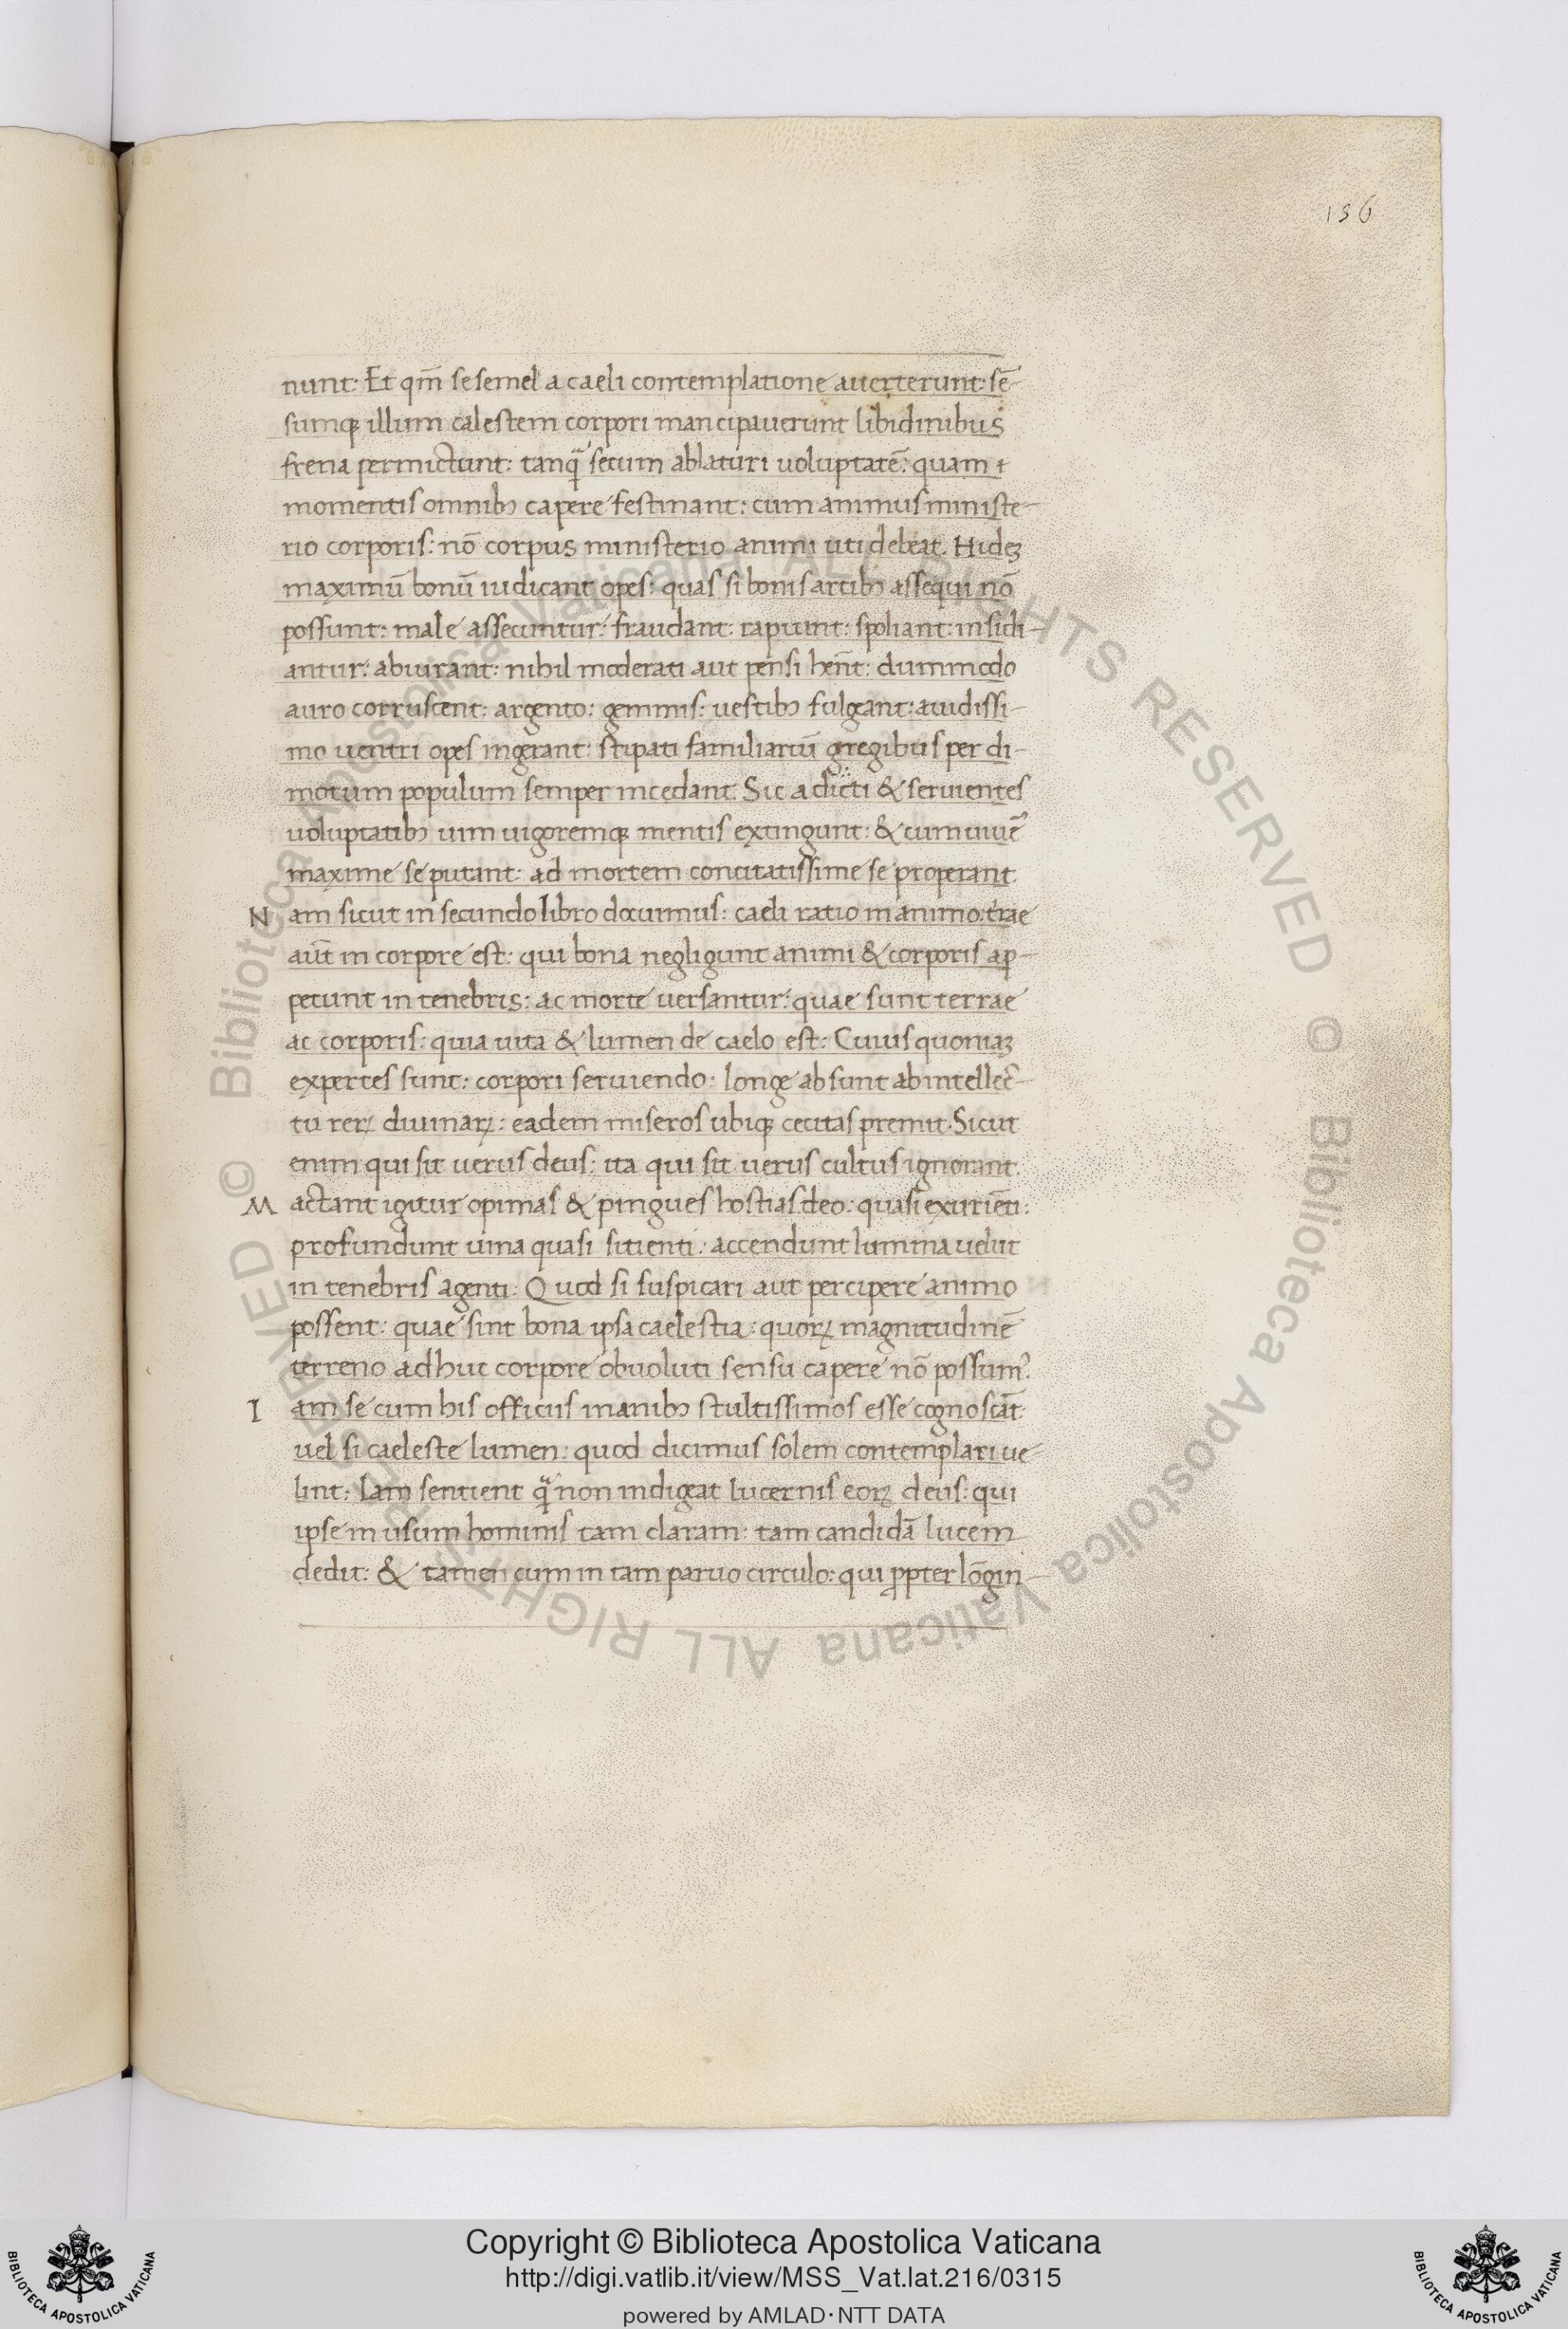 136
nunt: Et qm̄ se semel a caeli contemplatione auerterunt: sē-
sumq; illum calestem corpori mancipauerunt libidinibus
frena permictunt: tanq̃ secum ablaturi uoluptatē: quam &
momentis omnib; capere festinant: cum animus ministe-
rio corporis: nō corpus ministerio animi uti debeat. Hidez
maximū bonū iudicant opes: quas si bonis artib; assequi nō
possunt: male assecuntur: fraudant: rapiunt: spoliant: insidi-
antur: abiurant: nihil moderati aut pensi hēnt: dummodo
auro corruscent: argento: gemmis: uestib; fulgeant: auidissi-
mo uentri opes ingerant: stipati familiariū gregibus per di-
motum populum semper incedant. Sic adicti & seruientes
uoluptatib; uim uigoremq; mentis extingunt: & cum uiuē
maxime se putant: ad mortem concitatissime se properant.
Nam sicut in secundo libro docuimus: caeli ratio in animo: t̄rae
aūt in corpore est: qui bona negligunt animi & corporis ap-
petunt in tenebris: ac morte uersantur: quae sunt terrae
ac corporis: quia uita & lumen de caelo est: Cuius quoniaz
expertes sunt: corpori seruiendo: longe absunt ab intellec-
tu rerꝝ diuinarꝝ: eadem miseros ubiq; cecitas premit. Sicut
enim qui sit uerus deus: ita qui sit uerus cultus ignorant.
Mactant igitur opimas & pingues hostias deo: quasi exuriēti:
profundunt uina quasi sitienti: accendunt lumina uelut
in tenebris agenti: Quod si suspicari aut percipere animo
possent: quae sint bona ipsa caelestia: quorꝝ magnitudinē
terreno adhuc corpore obuoluti sensu capere nō possumꝰ.
Iam se cum his officiis inanib; stultissimos esse cognoscāt:
uel si caeleste lumen: quod dicimus solem contemplari ue-
lint: Iam sentient q̃ non indigeat lucernis eorꝝ deus: qui
ipse in usum hominis tam claram: tam candidā lucem
dedit: & tamen cum in tam paruo circulo: qui ꝓpter lōgin-
© Biblioteca Apostolica Vaticana ALL RIGHTS RESERVED © Biblioteca Apostolica Vaticana ALL RIGHTS RESERVED
Copyright © Biblioteca Apostolica Vaticana
http://digi.vatlib.it/view/MSS_Vat.lat.216/0315
powered by AMLAD·NTT DATA
BIBLIOTECA APOSTOLICA VATICANA
BIBLIOTECA APOSTOLICA VATICANA